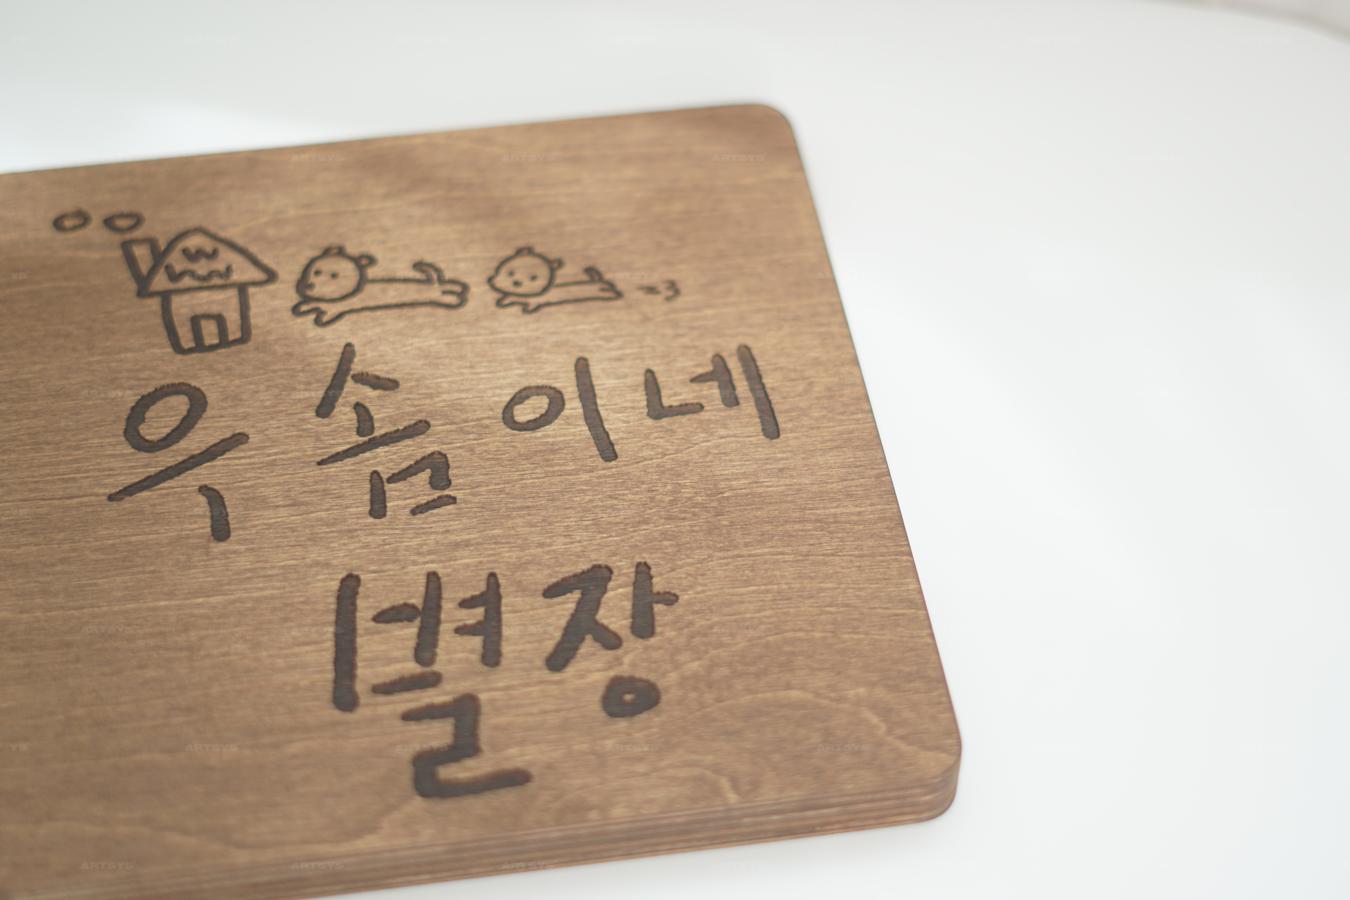 우솜이네
별장